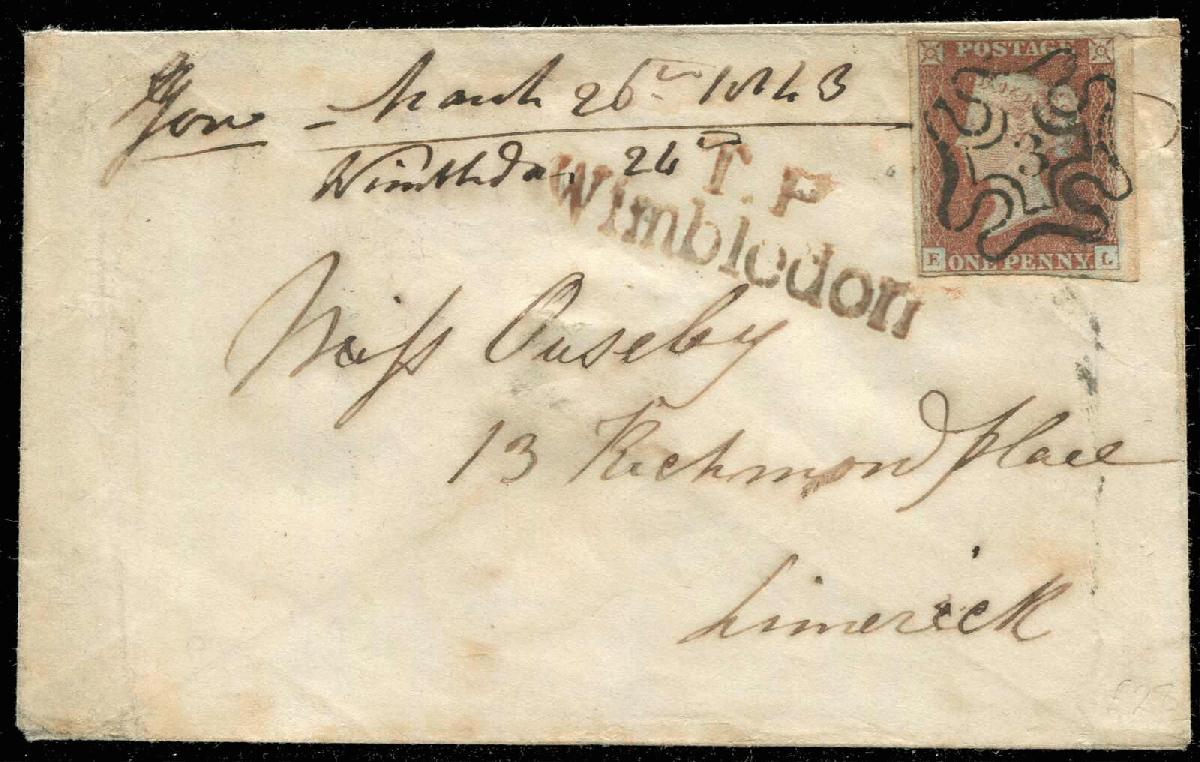 March 26th 1843
Wimbledon 24th
POSTAGE
3
E L
ONE PENNY
T.P
Wimbledon
Miss Ouseby
13 Richmond place
Limerick